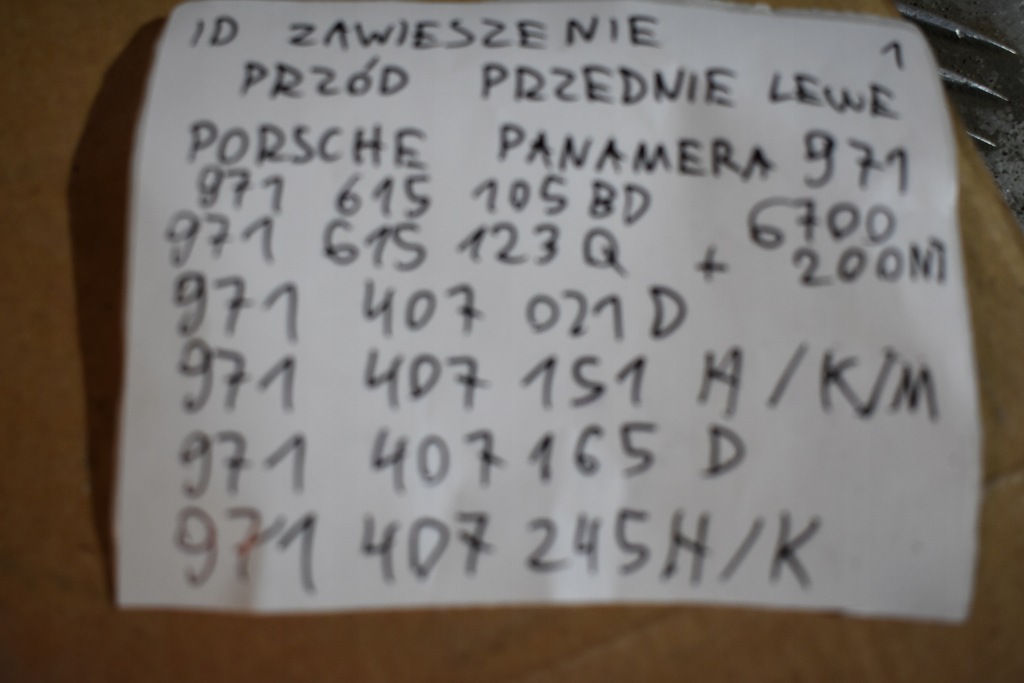 ID ZAWIESZENIE 1
PRZÓD PRZEDNIE LEWE
PORSCHE PANAMERA 971
971 615 105 BD 6700
971 615 123 Q + 200
971 407 021 D
971 407 151 H/K/M
971 407 165 D
971 407 245 H/K